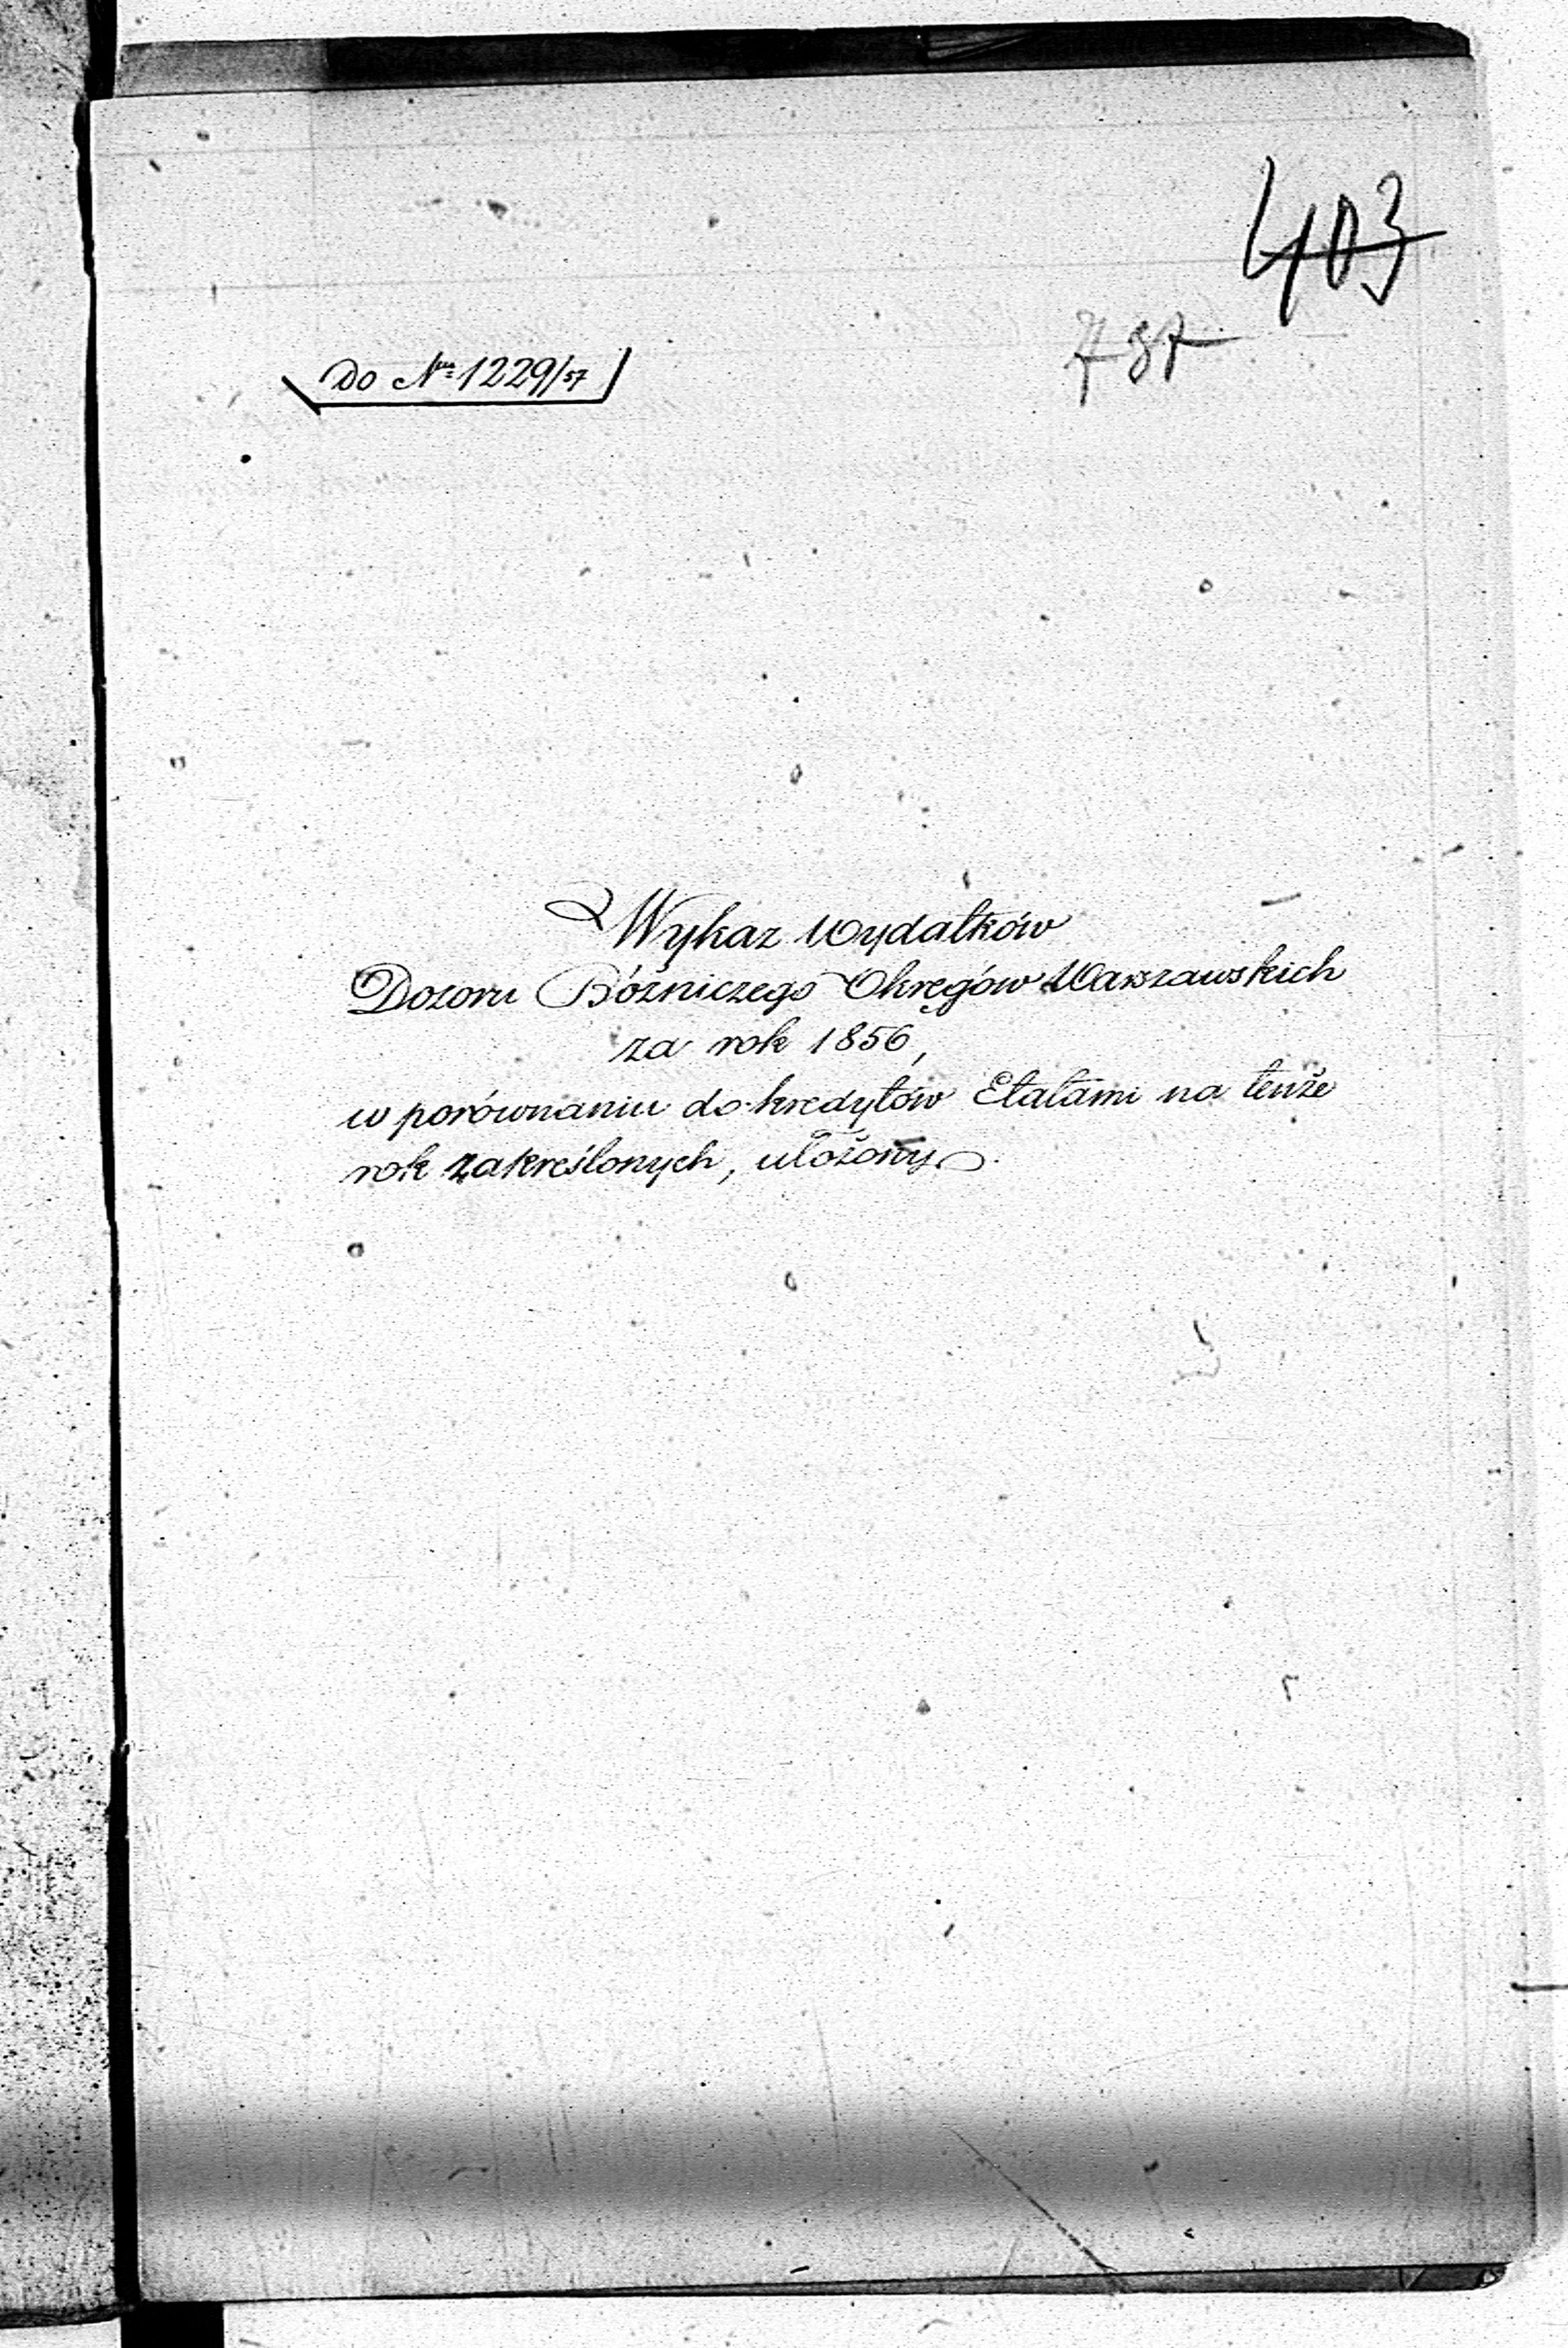 403
787
Do Nru 1229/57
Wykaz Wydatków
Dozoru Bóżniczego Okręgów Warszawskich
za rok 1856,
w porównaniu do kredytów Etatami na tenże
rok zakreślonych, ułożony.